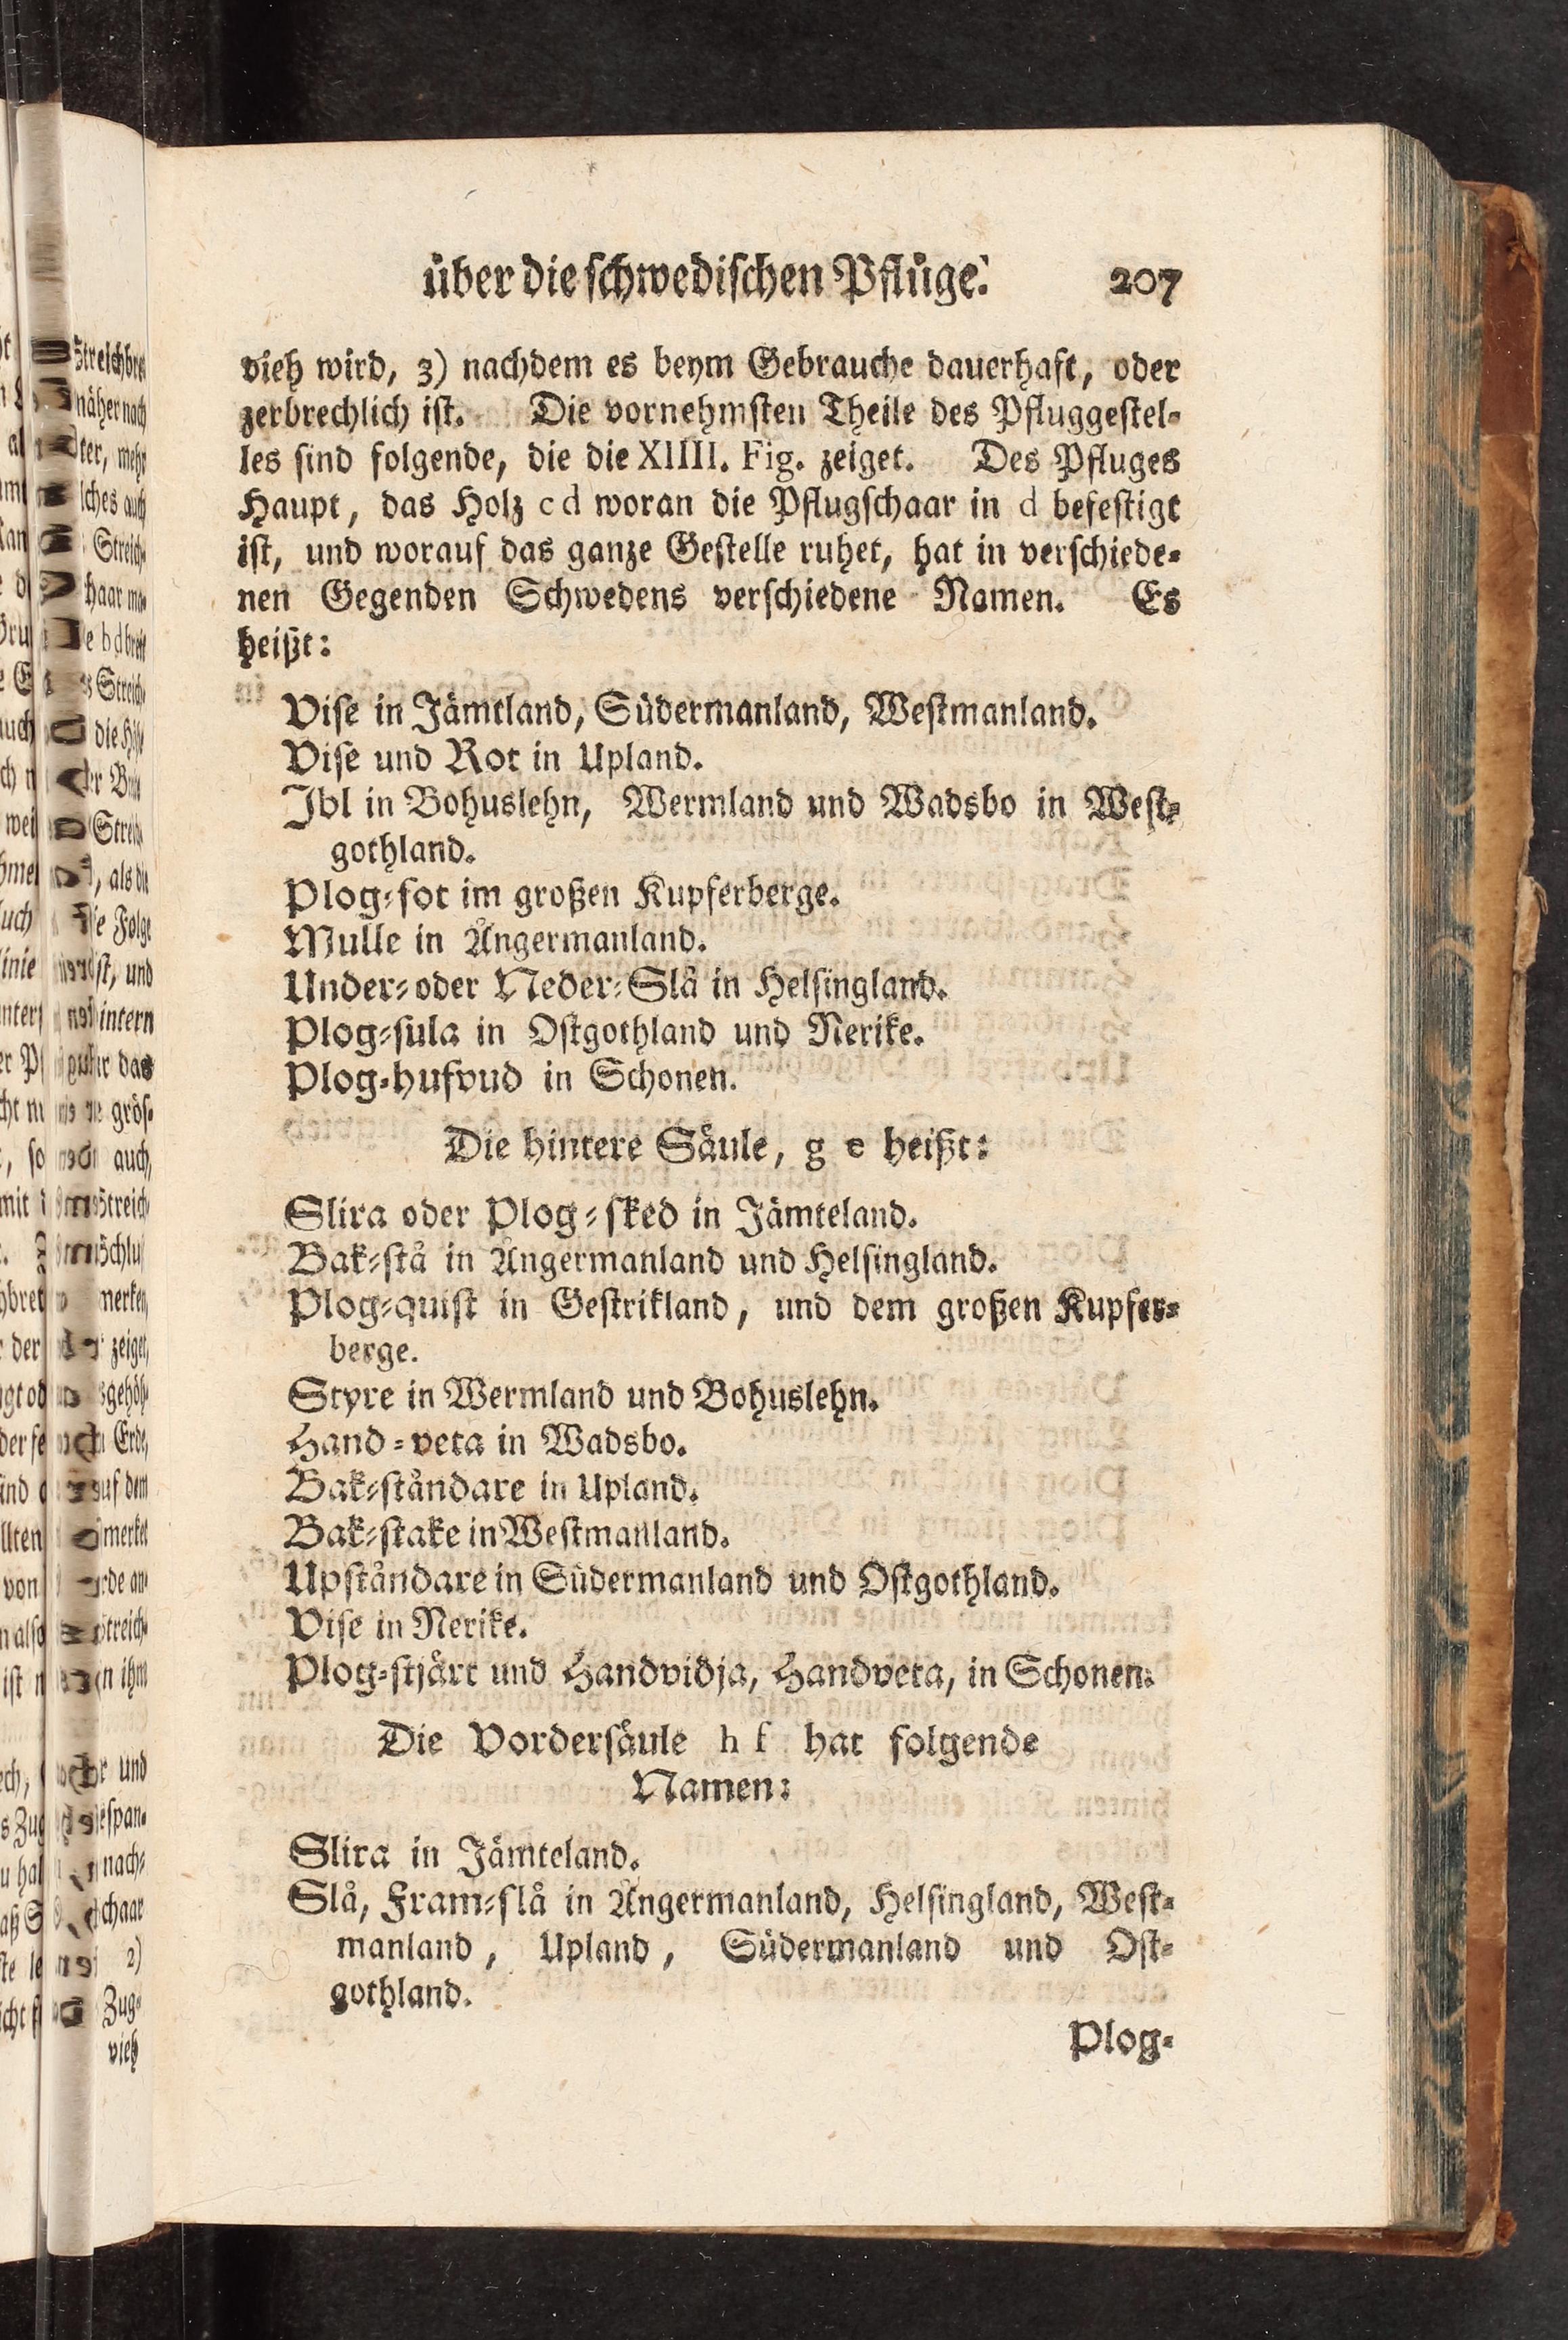 über die schwedischen Pflüge. 207
vieh wird, 3) nachdem es beym Gebrauche dauerhaft, oder
zerbrechlich ist. Die vornehmsten Theile des Pfluggestel-
les sind folgende, die die XIIII. Fig. zeiget. Des Pfluges
Haupt, das Holz c d woran die Pflugschaar in d befestigt
ist, und worauf das ganze Gestelle ruhet, hat in verschiede-
nen Gegenden Schwedens verschiedene Namen. Es
heißt:
Vise in Jämtland, Südermanland, Westmanland.
Vise und Rot in Upland.
Jbl in Bohuslehn, Wermland und Wadsbo in West-
gothland.
Plog-fot im großen Kupferberge.
Mulle in Ångermanland.
Under- oder Neder-Slå in Helsingland.
Plog-sula in Ostgothland und Nerike.
Plog-hufvud in Schonen.
Die hintere Säule, g e heißt:
Slira oder Plog-sked in Jämteland.
Bak-stå in Ångermanland und Helsingland.
Plog-quist in Gestrikland, und dem großen Kupfer-
berge.
Styre in Wermland und Bohuslehn.
Hand-veta in Wadsbo.
Bak-ståndare in Upland.
Bak-stake in Westmanland.
Upståndare in Südermanland und Ostgothland.
Vise in Nerike.
Plog-stjärt und Handvidja, Handveta, in Schonen.
Die Vordersäule h f hat folgende
Namen:
Slira in Jämteland.
Slå, Fram-slå in Ångermanland, Helsingland, West-
manland, Upland, Südermanland und Ost-
gothland.
Plog-